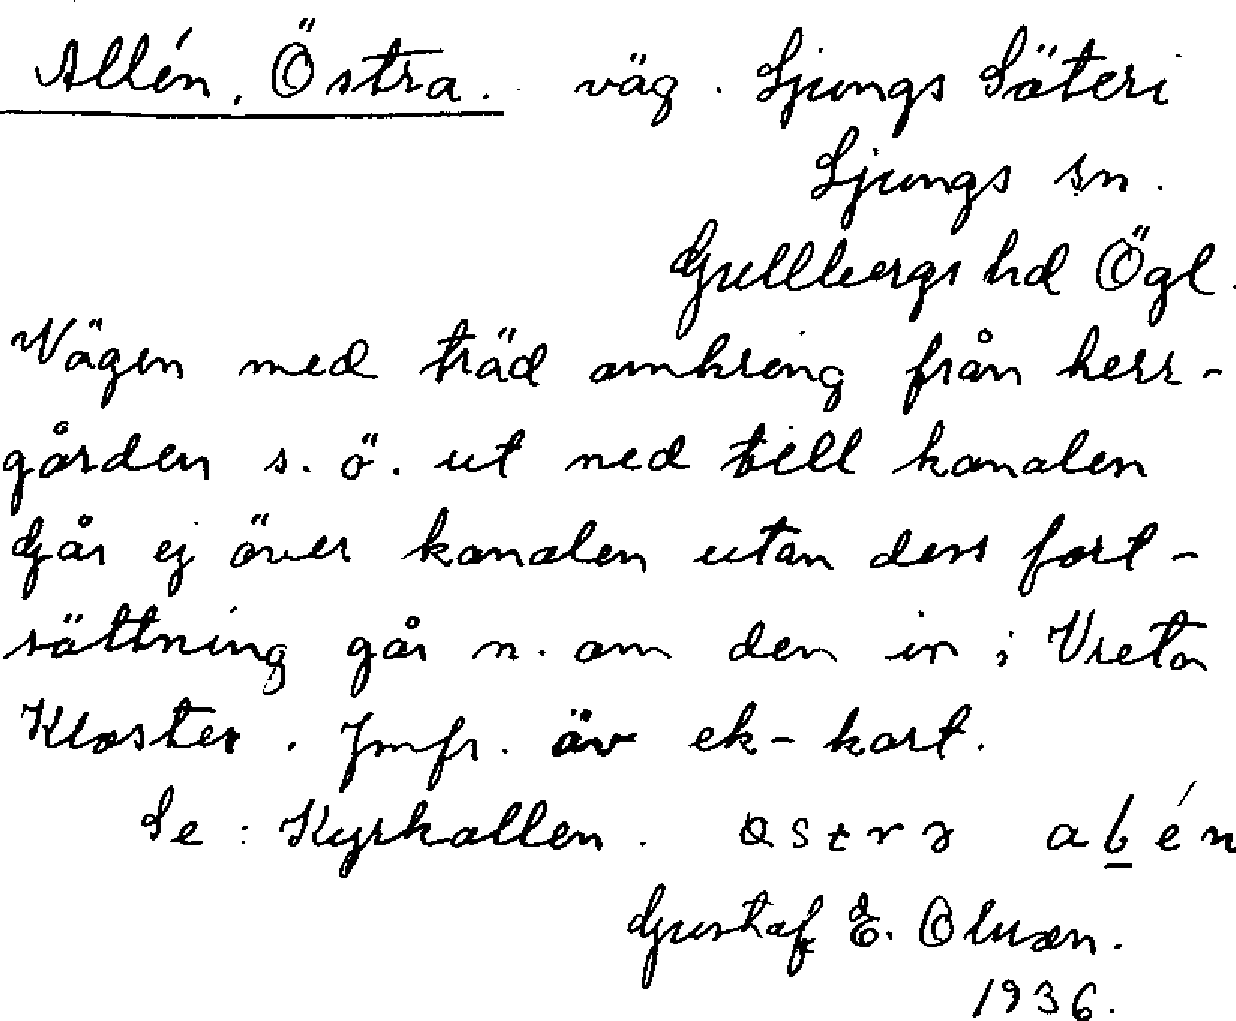 Allén, Östra. väg. Ljungs Säteri
Ljungs sn.
Gullbergs hd Ögl.
Vägen med träd omkring från herr-
gården s. ö. ut ned till kanalen
Går ej över kanalen utan dess fort-
sättning går n. om den in i Vreta
Kloster. Jmfr. äv ek-kart.
Se: Kyrkallen.
Gustaf E. Olsson.
1936.